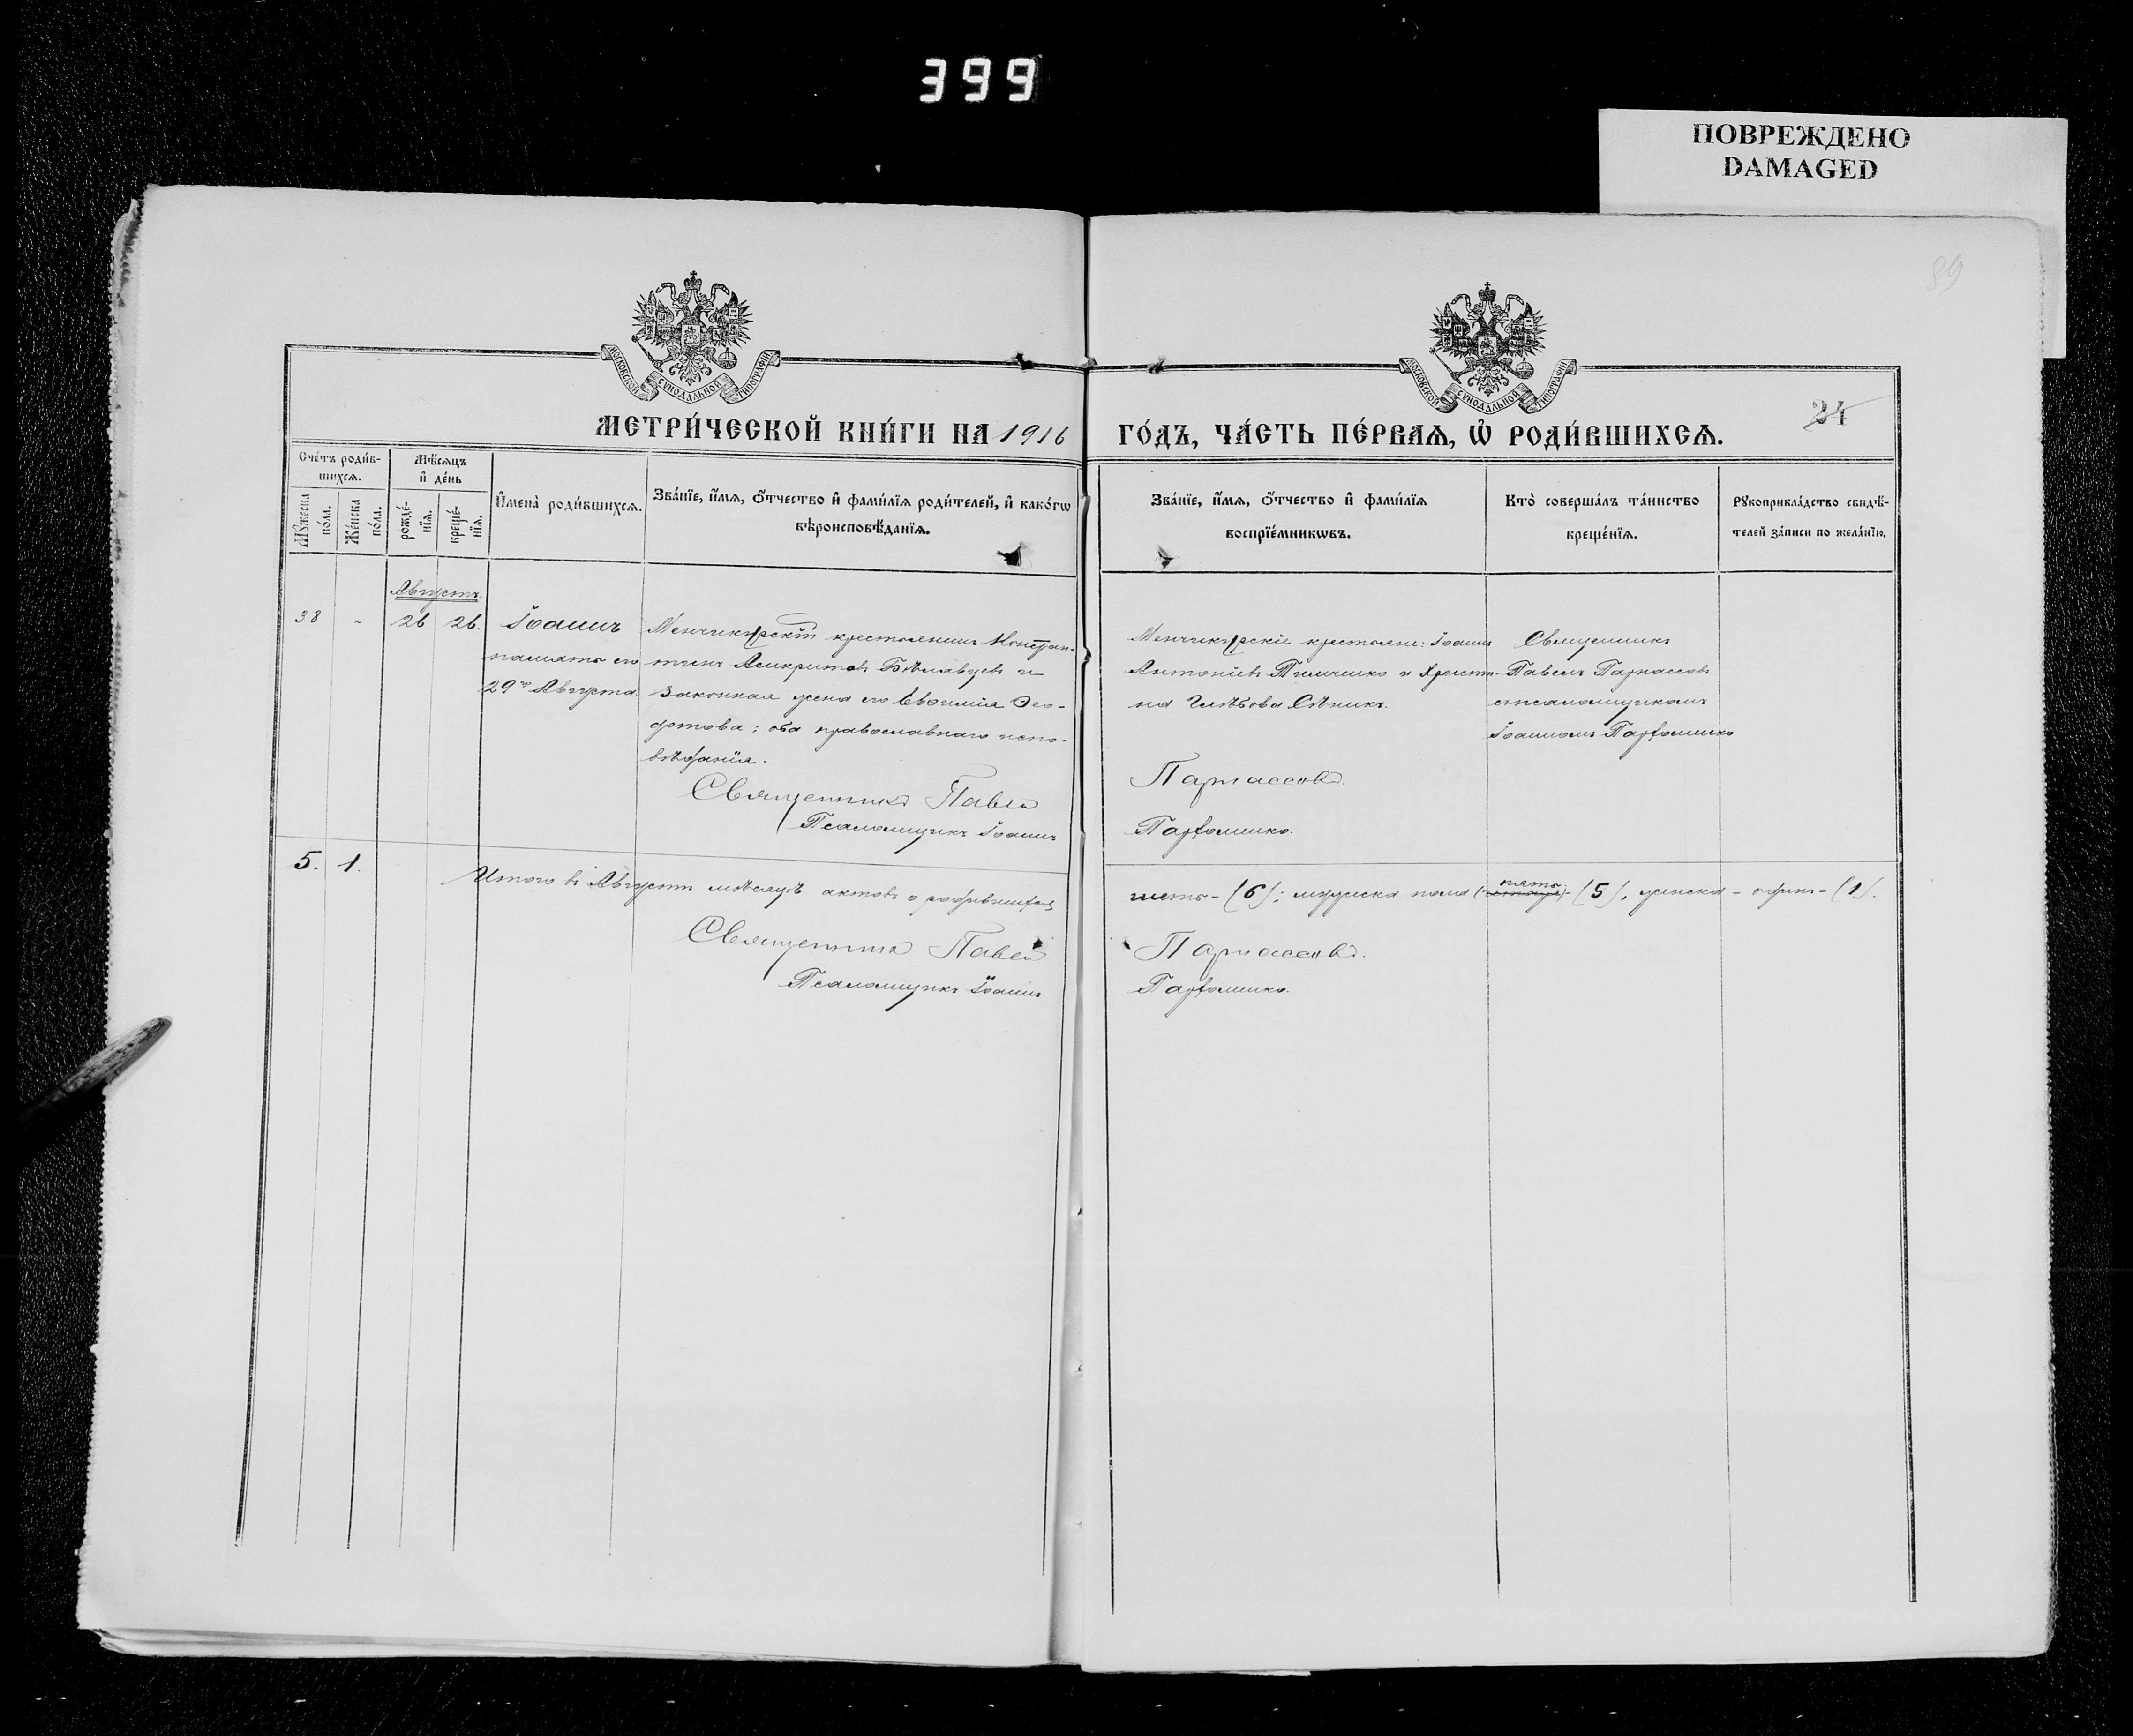 399
ПОВРЕЖДЕНО
DAMAGED
89
МОСКОВСКОЙ СѴНОДАЛЬНОЙ ТИПОГРАФІИ
МОСКОВСКОЙ СѴНОДАЛЬНОЙ ТИПОГРАФІИ
24
МЕТРИ́ЧЕСКОЙ КНИ́ГИ НА 1916 ГО́ДЪ, ЧА́СТЬ ПЕ́РВАЯ, Ѡ РОДИ́ВШИХСЯ.
Сче́тъ роди́в-
шихся.
Мꙋ́жеска по́ла.
Же́нска по́ла.
Мѣ́сяцъ
и҆ де́нь
рожде́-
нїя.
креще́-
нїя.
И҆мена̀ роди́вшихся.
Зва́нїе, и҆́мя, ѻ҆́тчество и҆ фами́лїя роди́телей, и҆ како́гѡ
вѣроисповѣ́данїя.
Зва́нїе, и҆́мя, ѻ҆́тчество и҆ фами́лїя
воспрїе́мникѡвъ.
Кто̀ соверша́лъ та́инство
креще́нїя.
Рꙋкоприкла́дство свидѣ́-
телей за́писи по жела́нїю.
Августъ
38 - 26 26.
Іоаннъ
память его
29го Августа.
Менчикурскій крестьянинъ Констан-
тинъ Асикритовъ Бѣлавцевъ и
законная жена его Евѳимія Ѳео-
дотова; оба православнаго испо-
вѣданія.
Священникъ Павелъ
Псаломщикъ Іоаннъ
Менчикурскіе крестьяне: Іоаннъ
Антоніевъ Тимченко и Христи-
на Глѣбова Сѣникъ.
Парнассовъ.
Парфоменко.
Священникъ
Павелъ Парнассовъ
съ псаломщикомъ
Іоанномъ Парфоменко
5. 1.
Итого въ Августѣ мѣсяцѣ актовъ о родившихся
шесть - (6); мужска пола пять - (5), женска - одинъ - (1).
Священникъ Павелъ
Псаломщикъ Іоаннъ
Парнассовъ.
Парфоменко.